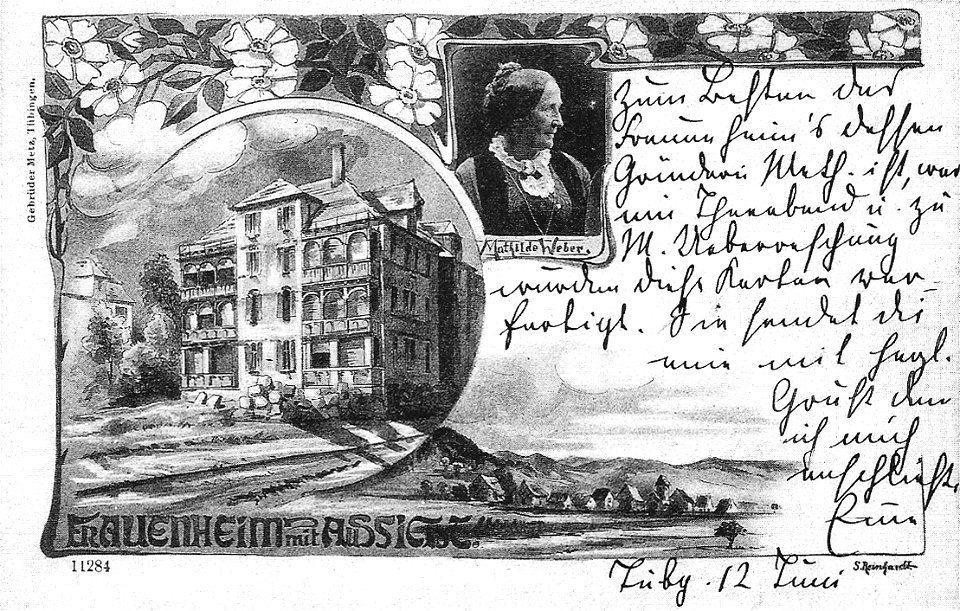 Gebrüder Metz, Tübingen.
Mathilde Weber.
Zum Besten des
Frauenheim's dessen
Gründerin Math. ist, war
ein Theeabend u. zu
M. Ueberraschung
wurden diese Karten ver-
fertigt. Sie sendet dir
eine mit herzl.
Gruß dem
ich mich
anschließe.
FRAUENHEIM mit AUSSICHT.
11284
S. Reinhardt
Tübg. 12 Juni